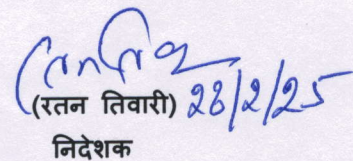 (रतन तिवारी) 28/2/25
निदेशक